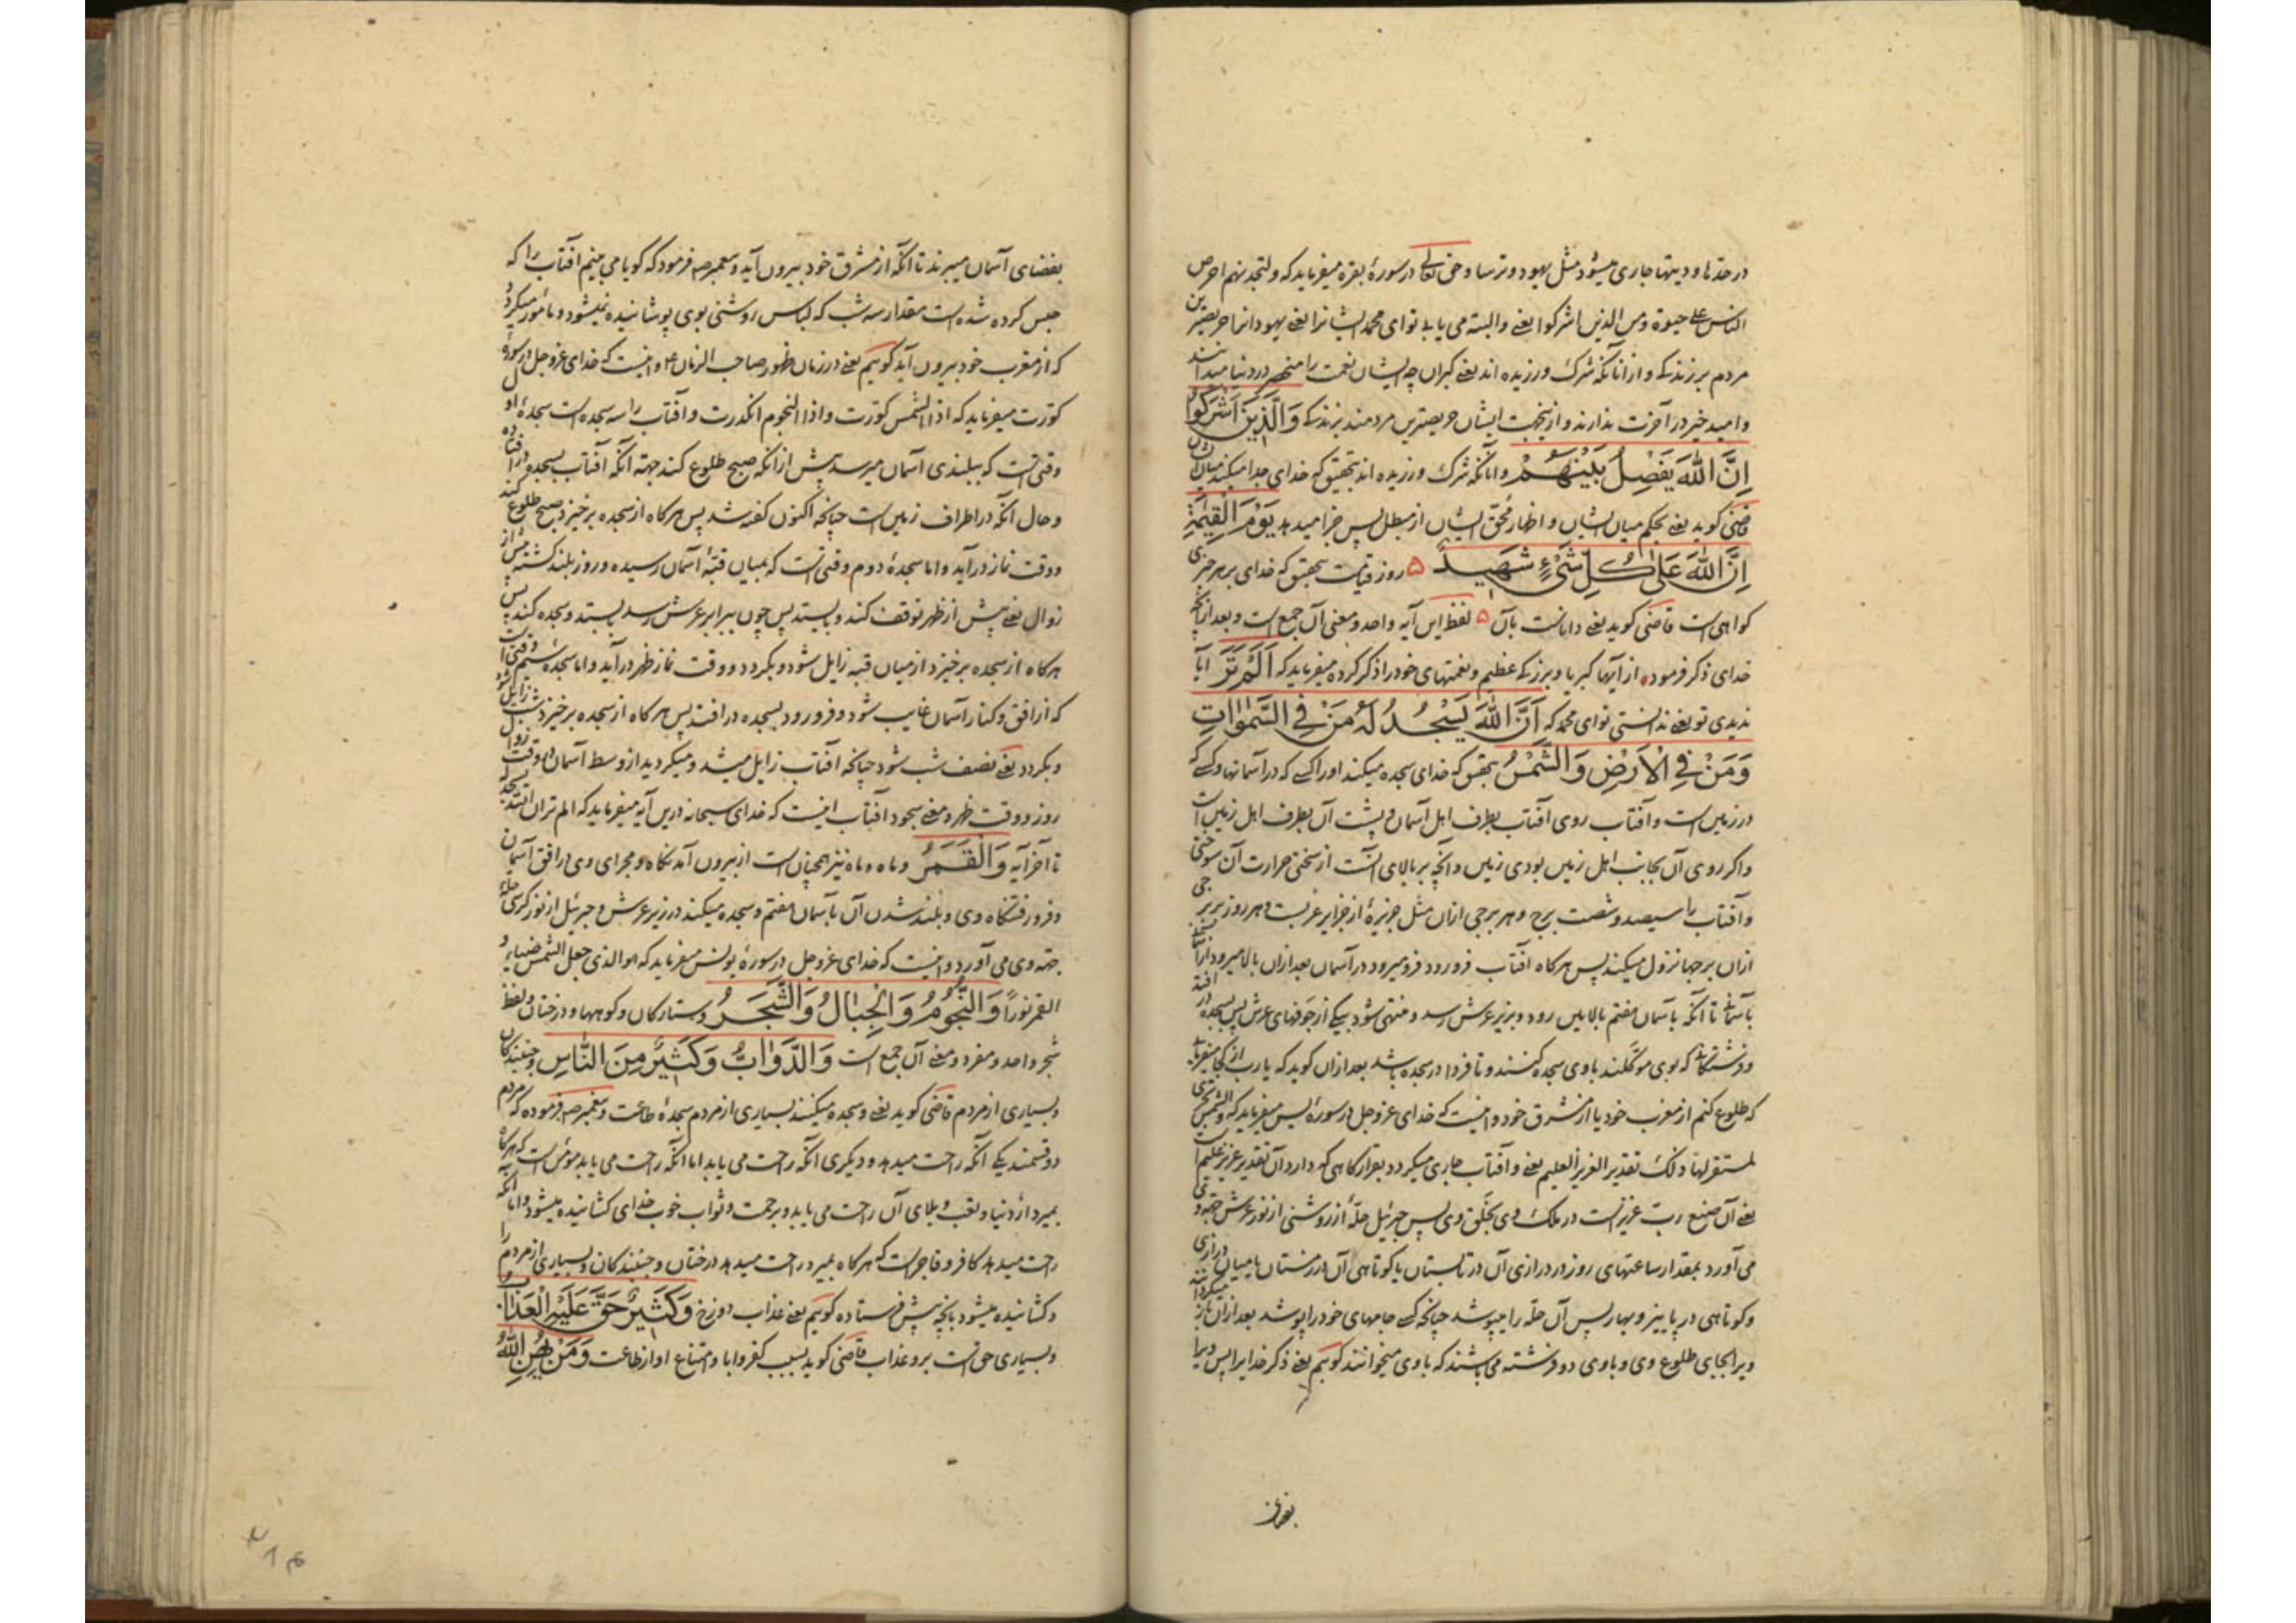 در حدها و دینها جاری میشود مثل یهود و ترسا و حق تعالی در سورهٔ بقره میفرماید که ولتجدنهم احرص
الناس علی حیوة ومن الذین اشرکوا یعنی والبته می یابی تو ای محمد ایشانرا یعنی یهود را حریصترین
مردم بر زندکی و از آنانکه شرک ورزیده اند یعنی کبران چه ایشان نعمت را منحصر در دنیا میدانند
و امید خیر در آخرت ندارند و از اینجهت ایشان حریصترین مردمند بزندکی وَالَّذِينَ أَشْرَكُوا
اِنَّ اللّٰهَ يَفْصِلُ بَيْنَهُمْ و آنانکه شرک ورزیده اند بتحقیق که خدای جدا میکند میان ایشان
قاضی کوید یعنی بحکم میان ایشان و اظهار محق ایشان از مبطل پس جزا میدهد يَوْمَ الْقِيٰمَةِ
اِنَّ اللّٰهَ عَلٰى كُلِّ شَيْءٍ شَهِيدٌ ۵ روز قیامت بتحقیق که خدای بر هر چیزی
کواهی است قاضی کوید یعنی داناست بآن ۵ لفظ این آیه واحد و معنی آن جمع است و بعد از آنچه
خدای ذکر فرموده از آیتها کبریا و بزرکی عظیم و نعمتهای خود را ذکر کرده میفرماید که اَلَمْ تَرَ آیا
ندیدی تو یعنی ندانستی تو ای محمد که اَنَّ اللّٰهَ يَسْجُدُ لَهُ مَنْ فِي السَّمٰوَاتِ
وَمَنْ فِي الْاَرْضِ وَالشَّمْسُ بتحقیق که خدای سجده میکند او را کسی که در آسمانها و کسی که
در زمین است و آفتاب روی آفتاب بطرف اهل آسمان و پشت آن بطرف اهل زمین است
و اکر روی آن بجانب اهل زمین بودی زمین و آنچه بر بالای آنست از سختی حرارت آن سوختی
و آفتاب را سیصد و شصت برج و هر برجی ازان مثل جزیرهٔ از جزایر عربست و هر روز ببرجی
ازان برجها نزول میکند پس هر کاه آفتاب فرو رود فرو میرود در آسمان بعد ازان بالا میرود از آسمان
بآسمان تا آنکه بآسمان هفتم بالایین رود و بزیر عرش رسد و منتهی شود بیکی از جوفهای عرش پس بسجده در افتد
و فرشتکان که بوی موکلند با وی سجده کنند و تا فردا در سجده باشد بعد ازان کوید که یا رب از کجا میفرمایی
که طلوع کنم از مغرب خود یا از مشرق خود و اینست که خدای عزوجل در سورهٔ یس میفرماید که والشمس تجری
لمستقرلها ذلک تقدیر العزیز العلیم یعنی و آفتاب جاری میکردد بقرارکاهی که دارد آن تقدیر عزیز علیم است
یعنی آن صنع رب عزیز است در ملک وی بخلق وی پس جبرئیل حلهٔ از روشنی از نور عرش جهته وی
می آورد بمقدار ساعتهای روز در درازی آن در تابستان یا کوتاهی آن در زمستان یا میان درازی
و کوتاهی در پاییز و بهار پس آن حله را میپوشد چنانچه کسی جامهای خود را پوشد بعد ازان باز میکرداند
ویرا بجای طلوع وی و با وی دو فرشته می باشند که با وی میخوانند کوییم یعنی ذکر خدایرا پس ویرا
بفضای
بفضای آسمان میبرند تا آنکه از مشرق خود بیرون آید و پیغمبر ص فرمود که کویا می بینم آفتاب را که
حبس کرده شده است مقدار سه شب که لباس روشنی بوی پوشانیده نمیشود و مأمور میکردد
که از مغرب خود بیرون آید کوییم یعنی در زمان ظهور صاحب الزمان ع و اینست که خدای عزوجل در سورهٔ
کورت میفرماید که اذا الشمس کورت واذا النجوم انکدرت و آفتاب را سه سجده است سجدهٔ اول
وقتی است که ببلندی آسمان میرسد پیش از آنکه صبح طلوع کند جهته آنکه آفتاب بسجده در افتاده
و حال آنکه در اطراف زمین است چنانچه اکنون کفته شد پس هر کاه از سجده برخیزد صبح طلوع کند
و وقت نماز در آید و اما سجدهٔ دوم وقتی است که بمیان قبهٔ آسمان رسیده و روز بلند کشته پس از
زوال یعنی پیش از ظهر توقف کند و بایستد پس چون ببرابر عرش رسد بایستد و سجده کند پس
هر کاه از سجده برخیزد از میان قبه زایل شود و بکردد و وقت نماز ظهر در آید و اما سجدهٔ سیم وقتی است
که از افق و کنار آسمان غایب شود و فرو رود بسجده در افتد پس هر کاه از سجده برخیزد شب زایل شود
و بکردد یعنی نصف شب شود چنانچه آفتاب زایل میشد و میکردید از وسط آسمان در وقت زوال
روز و وقت ظهر و معنی سجود آفتاب اینست که خدای سبحانه درین آیه میفرماید که الم تر ان الله یسجد له
تا آخر آیه وَالْقَمَرُ و ماه و ماه نیز همچنان است از بیرون آمدنکاه و مجرای وی در افق آسمان
و فرو رفتنکاه وی و بلند شدن آن بآسمان هفتم و سجده میکند در زیر عرش و جبرئیل از نور کرسی حلهٔ
جهته وی می آورد و اینست که خدای عزوجل در سورهٔ یونس میفرماید که هو الذی جعل الشمس ضیاء و
القمر نوراً وَالنُّجُومُ وَالْجِبَالُ وَالشَّجَرُ و ستارکان و کوهها و درختان و لفظ
شجر واحد و مفرد و معنی آن جمع است وَالدَّوَابُّ وَكَثِيرٌ مِنَ النَّاسِ و جنبندکان
و بسیاری از مردم قاضی کوید یعنی و سجده میکنند بسیاری از مردم سجدهٔ طاعت و پیغمبر ص فرموده که مردم
دو قسمند یکی آنکه راحت میدهد و دیکری آنکه راحت می یابد اما آنکه راحت می یابد مؤمن است که هر کاه
بمیرد از دنیا و تعب و بلای آن راحت می یابد و برحمت و ثواب خوب خدای کشانیده میشود و اما آنکه
راحت میدهد کافر و فاجر است که هر کاه بمیرد راحت میدهد درختان و جنبندکان و بسیاری از مردم را
و کشانیده میشود بآنچه پیش فرستاده کوییم یعنی عذاب دوزخ وَكَثِيرٌ حَقَّ عَلَيْهِ الْعَذَابُ
و بسیاری حق است برو عذاب قاضی کوید بسبب کفر و ابا و امتناع او از طاعت وَمَنْ يُهِنِ اللّٰهُ